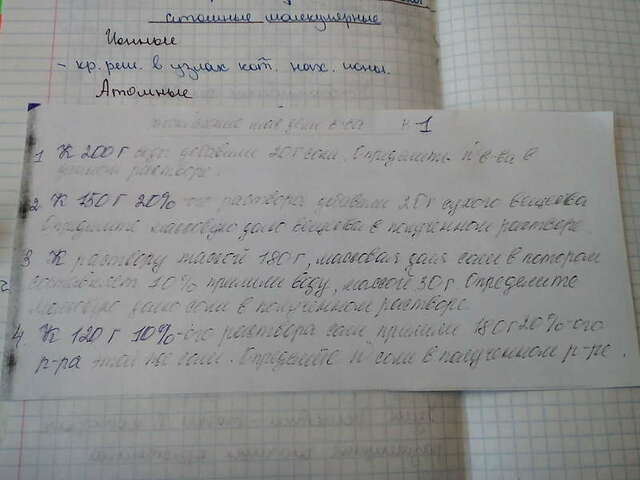 атомные молекулярные
Ионные
- кр. реш. в узлах кот. нах. ионы.
Атомные
в-ва в 1
1 К 200 г воды добавили 20 г соли. Определите n в-ва в
растворе.
2 К 150 г 20%-ого раствора добавили 20 г сухого вещества
Определите массовую долю вещества в полученном растворе.
3 К раствору массой 180 г, массовая доля соли в котором
составляет 10% прилили воду, массой 30 г Определите
массовую долю соли в полученном растворе.
4. К 120 г 10%-ого раствора соли прилили 180 г 20%-ого
р-ра этой же соли. Определите n соли в полученном р-ре.